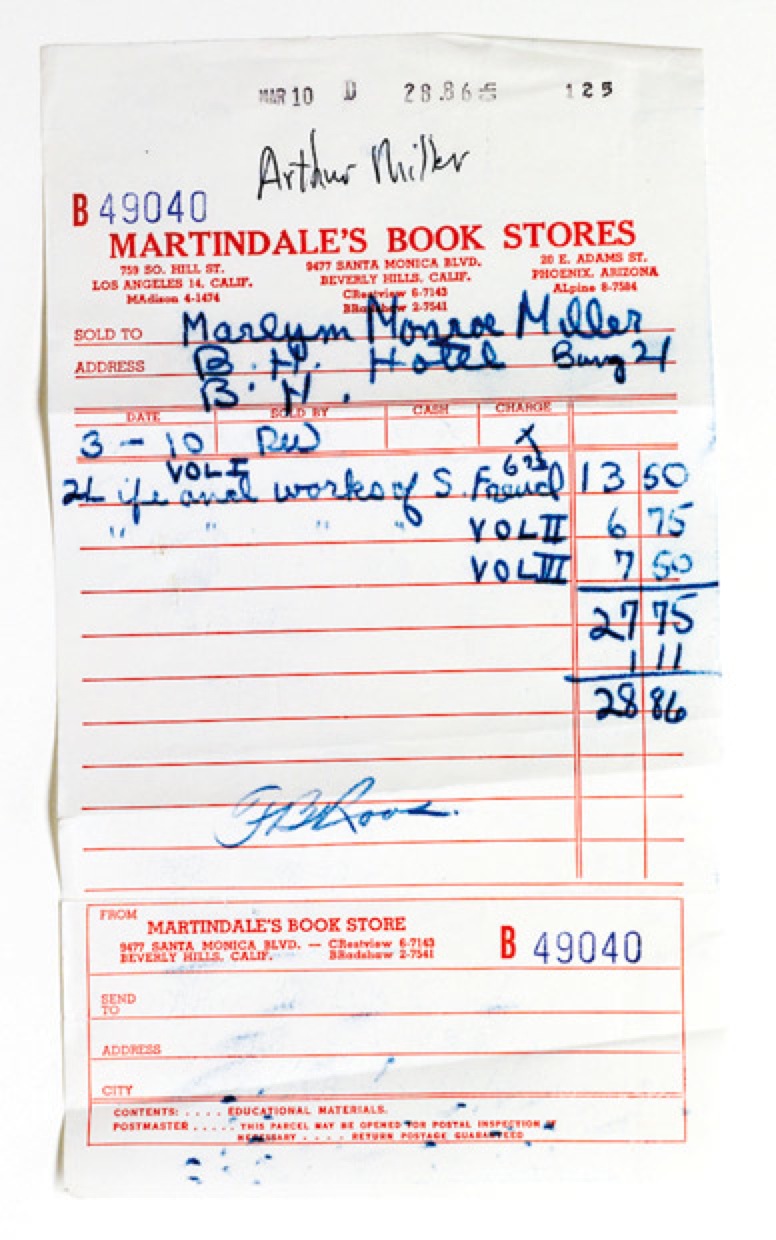 MAR 10 D 28.86 125
Arthur Miller
B 49040
MARTINDALE'S BOOK STORES
759 SO. HILL ST. 9477 SANTA MONICA BLVD. 20 E. ADAMS ST.
LOS ANGELES 14, CALIF. BEVERLY HILLS, CALIF. PHOENIX, ARIZONA
MAdison 4-1474 CRestview 6-7143 ALpine 8-7584
BRadshaw 2-7541
SOLD TO Marlym Monroe Miller
ADDRESS B. H. Hotel Bung 21
B. H.
DATE SOLD BY CASH CHARGE
3 - 10 RW X
VOL I 6 75
2 Life and works of S. Freud 13 50
" " " " VOL II 6 75
VOL III 7 50
27 75
1 11
28 86
FROM
MARTINDALE'S BOOK STORE
9477 SANTA MONICA BLVD. — CRestview 6-7143 B 49040
BEVERLY HILLS, CALIF. BRadshaw 2-7541
SEND
TO
ADDRESS
CITY
CONTENTS: . . . . EDUCATIONAL MATERIALS.
POSTMASTER . . . . . THIS PARCEL MAY BE OPENED FOR POSTAL INSPECTION IF
NECESSARY . . . . RETURN POSTAGE GUARANTEED